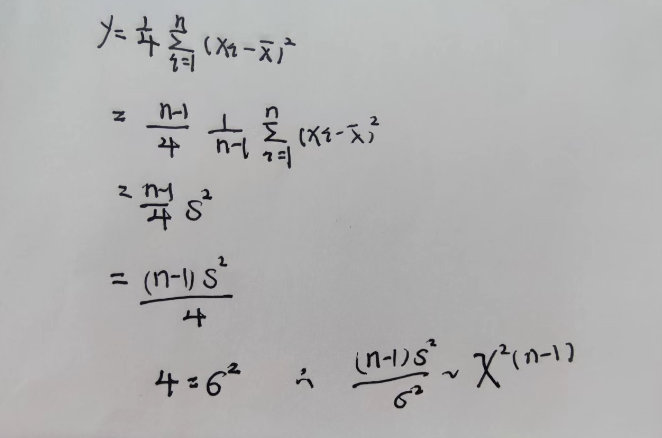 y = 1/4 Σ_{i=1}^{n} (xi - x̄)²
= (n-1)/4 1/(n-1) Σ_{i=1}^{n} (xi - x̄)²
= (n-1)/4 S²
= (n-1)S²/4
4 = σ² ∴ (n-1)S²/σ² ~ χ²(n-1)